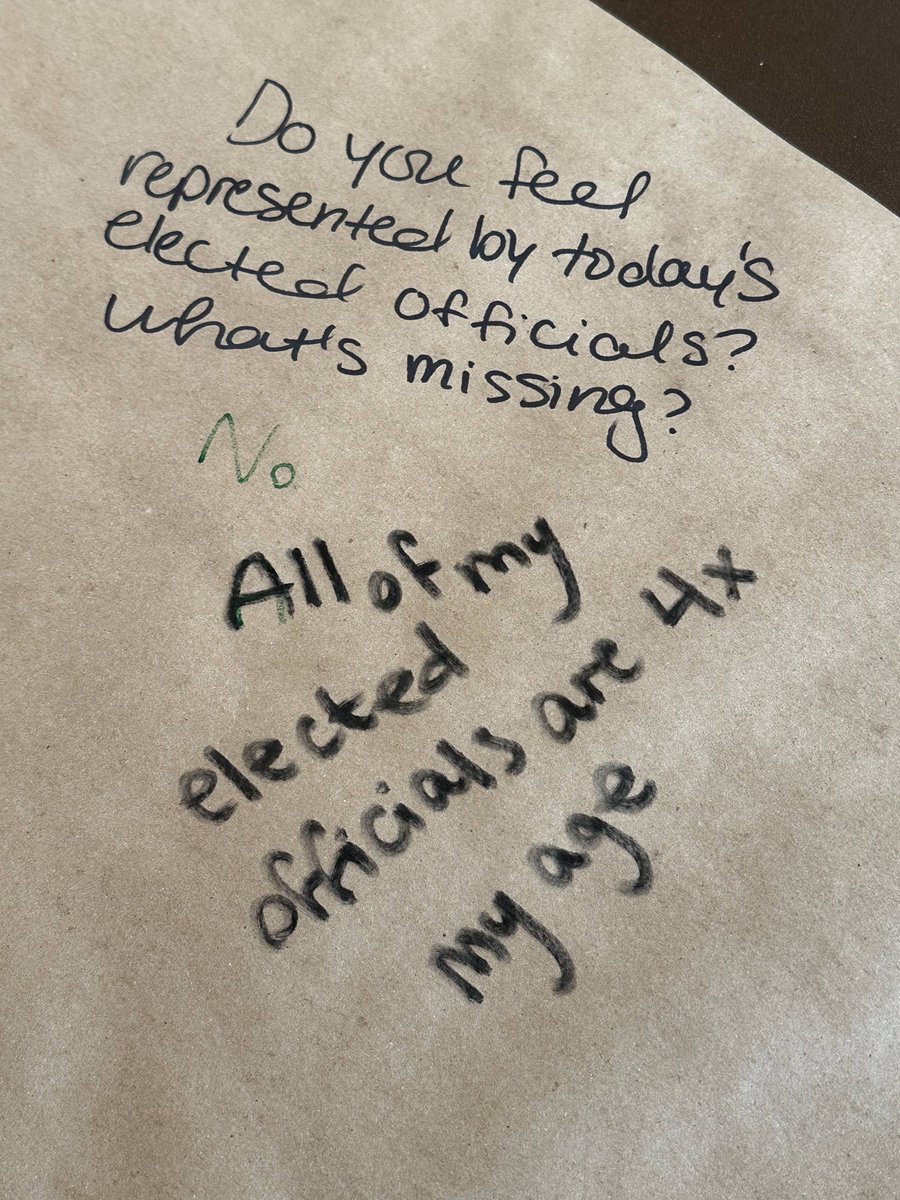 Do you feel
represented by today's
elected officials?
What's missing?
No
All of my
elected
officials are 4x
my age